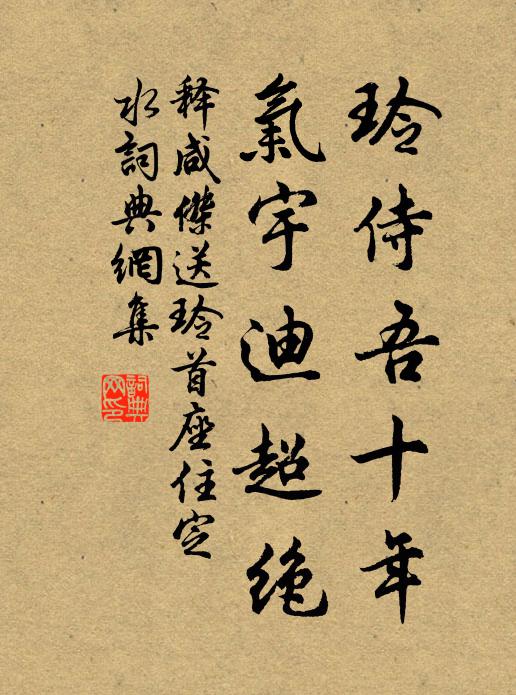 玲侍吾十年
氣宇迪超絶
释咸傑送玲首座住定
水詞典網集
詞典网印